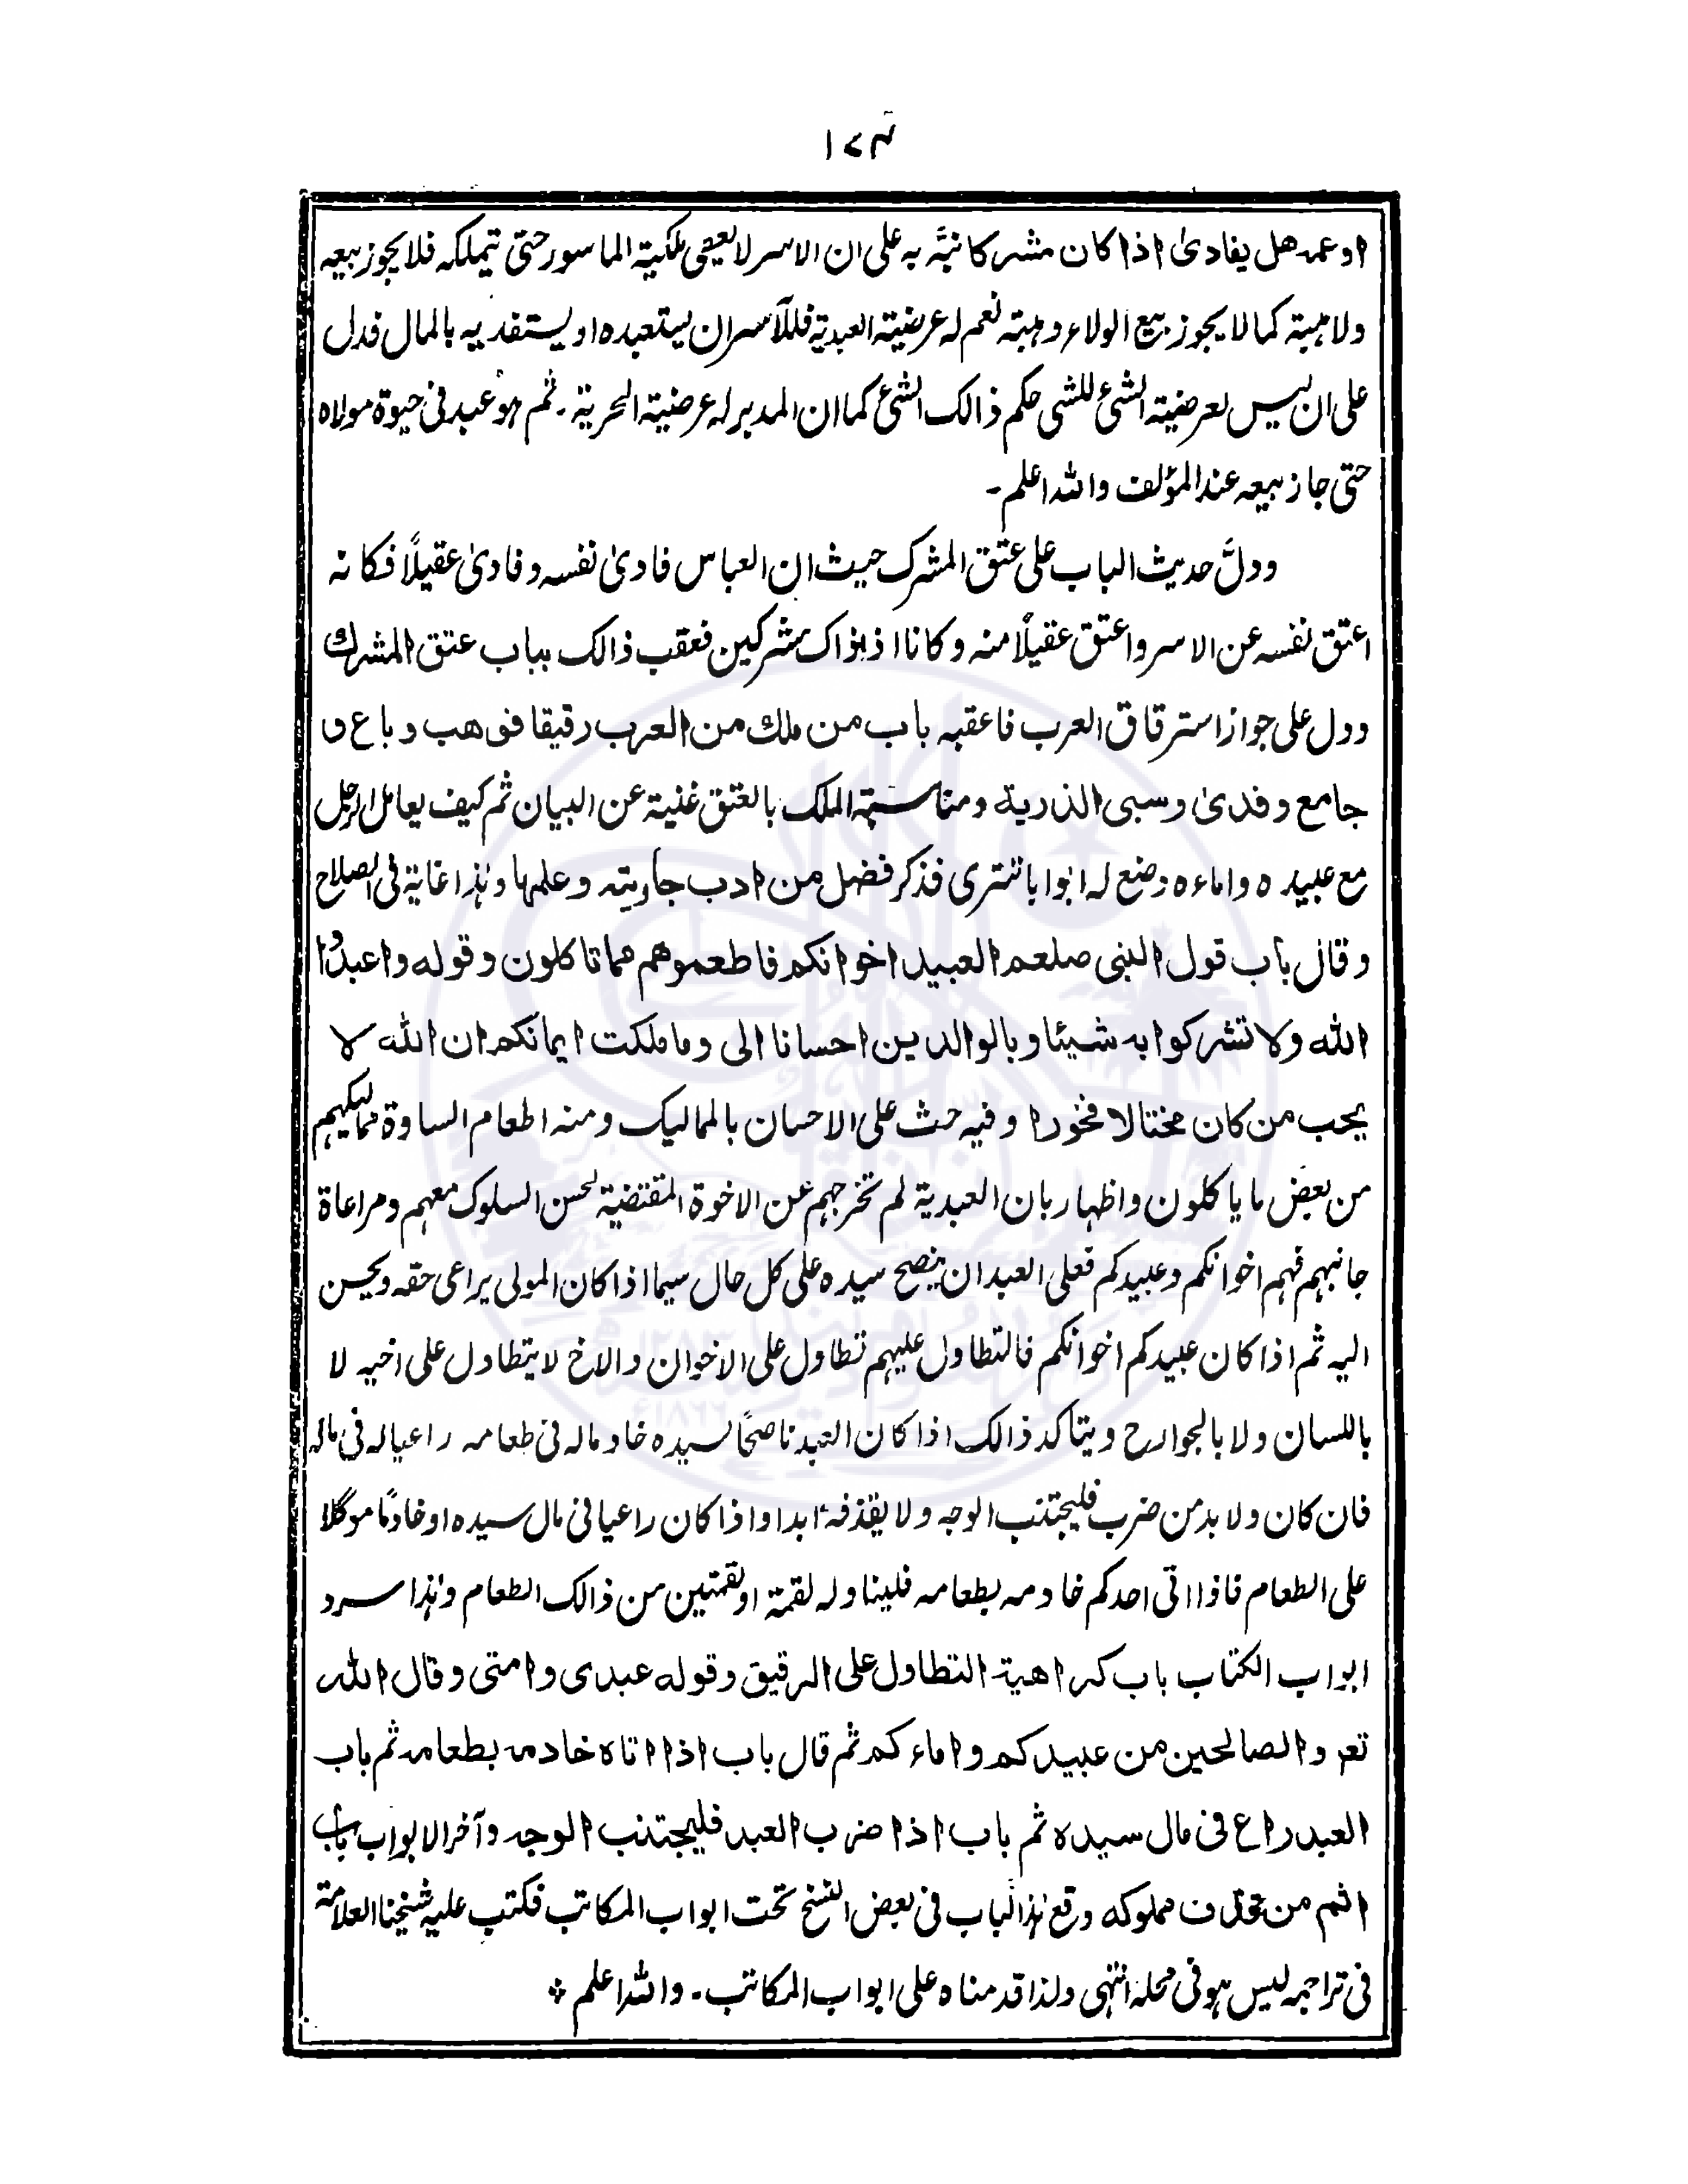 ١٧٤
او عمه هل يفادىٰ اذا كان مشركا نبَّه به على ان الاسر لا يعطى ملكية الماسور حتى يتملكه فلا يجوز بيعه
ولا هبتة كما لا يجوز بيع الولاء وهبته نعم له عرضية العبدية فللآسر ان يستعبده او يستفديه بالمال فدل
على ان ليس لعرضية الشئ للشى حكم ذالك الشئ كما ان المدبر له عرضية الحرية۔ ثم هو عبد فى حيوة مولاه
حتى جاز بيعه عند المؤلف والله اعلم۔
ودلَّ حديث الباب على عتق المشرك حيث ان العباس فادىٰ نفسه وفادىٰ عقيلًا فكانه
اعتق نفسه عن الاسر واعتق عقيلًا منه وكانا اذ ذاك مشركين فعقب ذالك بباب عتق المشرك
ودل على جواز استرقاق العرب فاعقبه باب من ملك من العرب رقيقا فوهب وباع و
جامع وفدىٰ وسبى الذرية ومناسبة الملك بالعتق غنية عن البيان ثم كيف يعامل الرجل
مع عبيده واماءه وضع له ابوابا تترى فذكر فضل من ادب جاريته وعلمها وهذا غاية فى الصلاح
وقال باب قول النبى صلعم العبيد اخوانكم فاطعموهم مما تاكلون وقوله واعبدُوا
الله ولا تشركوا به شيئا وبالوالدين احسانا الى وما ملكت ايمانكم ان الله لا
يحب من كان مختالا فخورا وفيه حث على الاحسان بالمماليك ومنه اطعام الساوة مماليكهم
من بعض ما ياكلون واظهار بان العبدية لم تخرجهم عن الاخوة المقتضية لحسن السلوك معهم ومراعاة
جانبهم فهم اخوانكم وعبيدكم فعلى العبد ان ينصح سيده على كل حال سيما اذا كان المولى يراعى حقه ويحسن
اليه ثم اذا كان عبيدكم اخوانكم فالتطاول عليهم تطاول على الاخوان والاخ لا يتطاول على اخيه لا
باللسان ولا بالجوارح ويتاكد ذالك اذا كان العبد ناصحًا لسيده خادما له فى طعامه راعيا له فى ماله
فان كان ولا بد من ضرب فليجتنب الوجه ولا يقذفه ابدا واذا كان راعيا فى مال سيده او خادمًا موكلا
على الطعام فاذا اتى احدكم خادمه بطعامه فليناوله لقمة او لقمتين من ذالك الطعام وهذا سرد
ابواب الكتاب باب كراهية التطاول على الرقيق وقوله عبدى وامتى وقال الله
تعر والصالحين من عبيدكم واماءكم ثم قال باب اذا اتاه خادمه بطعامه ثم باب
العبد راع فى مال سيده ثم باب اذا ضرب العبد فليجتنب الوجه وآخر الابواب باب
اثم من قذف مملوكه وقع هذا الباب فى بعض النسخ تحت ابواب المكاتب فكتب عليه شيخنا العلامة
فى تراجمه ليس هو فى محله انتهى ولذا قدمناه على ابواب المكاتب۔ والله اعلم